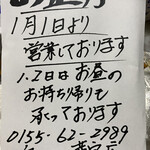 1月1日より
営業しております
1.2日はお昼の
お持ち帰りで
承っております
0155-62-2989